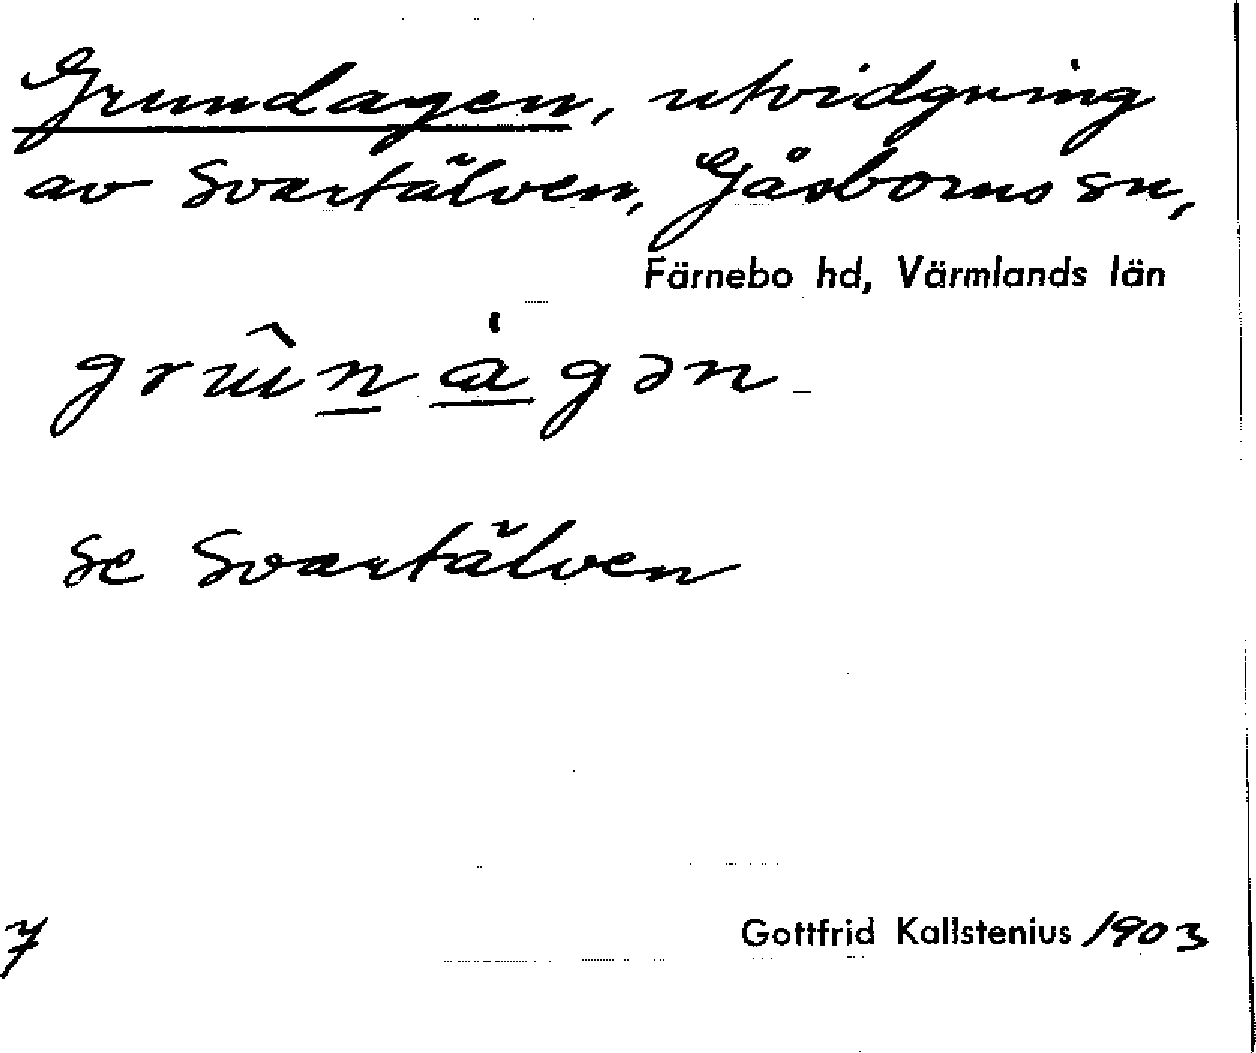 Grundagen, utvidgning
av Svartälven, Gåsborns sn,
Färnebo hd, Värmlands län
grùnágən
se Svartälven
7
Gottfrid Kallstenius 1903